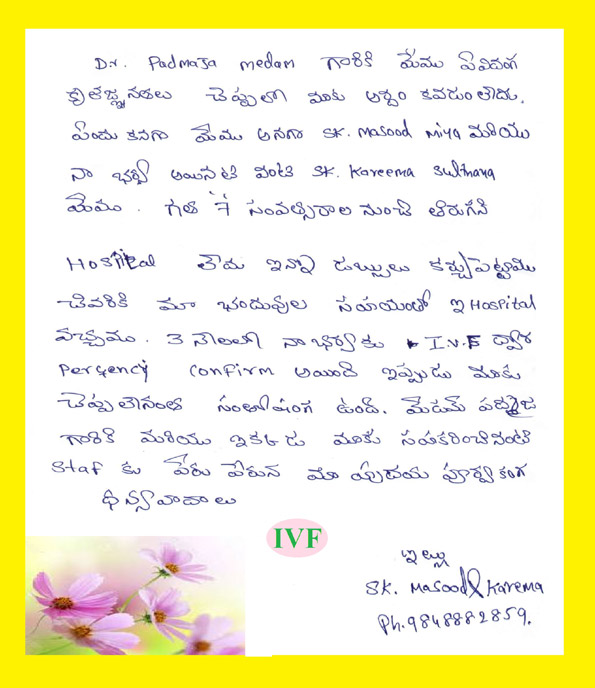 Dr. Padmaja medam గారికి మేము ఏవిదంగ
క్రితజ్ఞనతలు చెప్పలో మాకు అర్దం కవడంలేదు.
ఎందు కనగా మేము అనగా SK. Masood Miya మరియు
నా భర్య అయినటి వంటి SK. Kareema Sulthana
మేము. గత 7 సంవత్సరాల నుంచి తిరుగని
Hospital లేదు ఇన్నో డబ్బులు కర్చుపెట్టాము
చివరికి మా భందువుల సహయంతో ఇ Hospital
వచ్చాము. 3 నెలలలో నా భర్యకు I.V.F ద్వార
Pergency Confirm అయింది ఇప్పుడు మాకు
చెప్పలేనంత సంతోషంగ ఉంది. మేడమ్ పద్మజ
గారికి మరియు ఇకకడ మాకు సహకరించినంటి
Staf కు పేరు పేరున మా హృదయ పూర్వకంగ
ధన్యవాదాలు
IVF
ఇట్లు
SK. Masood & Karema
Ph. 9848882859.